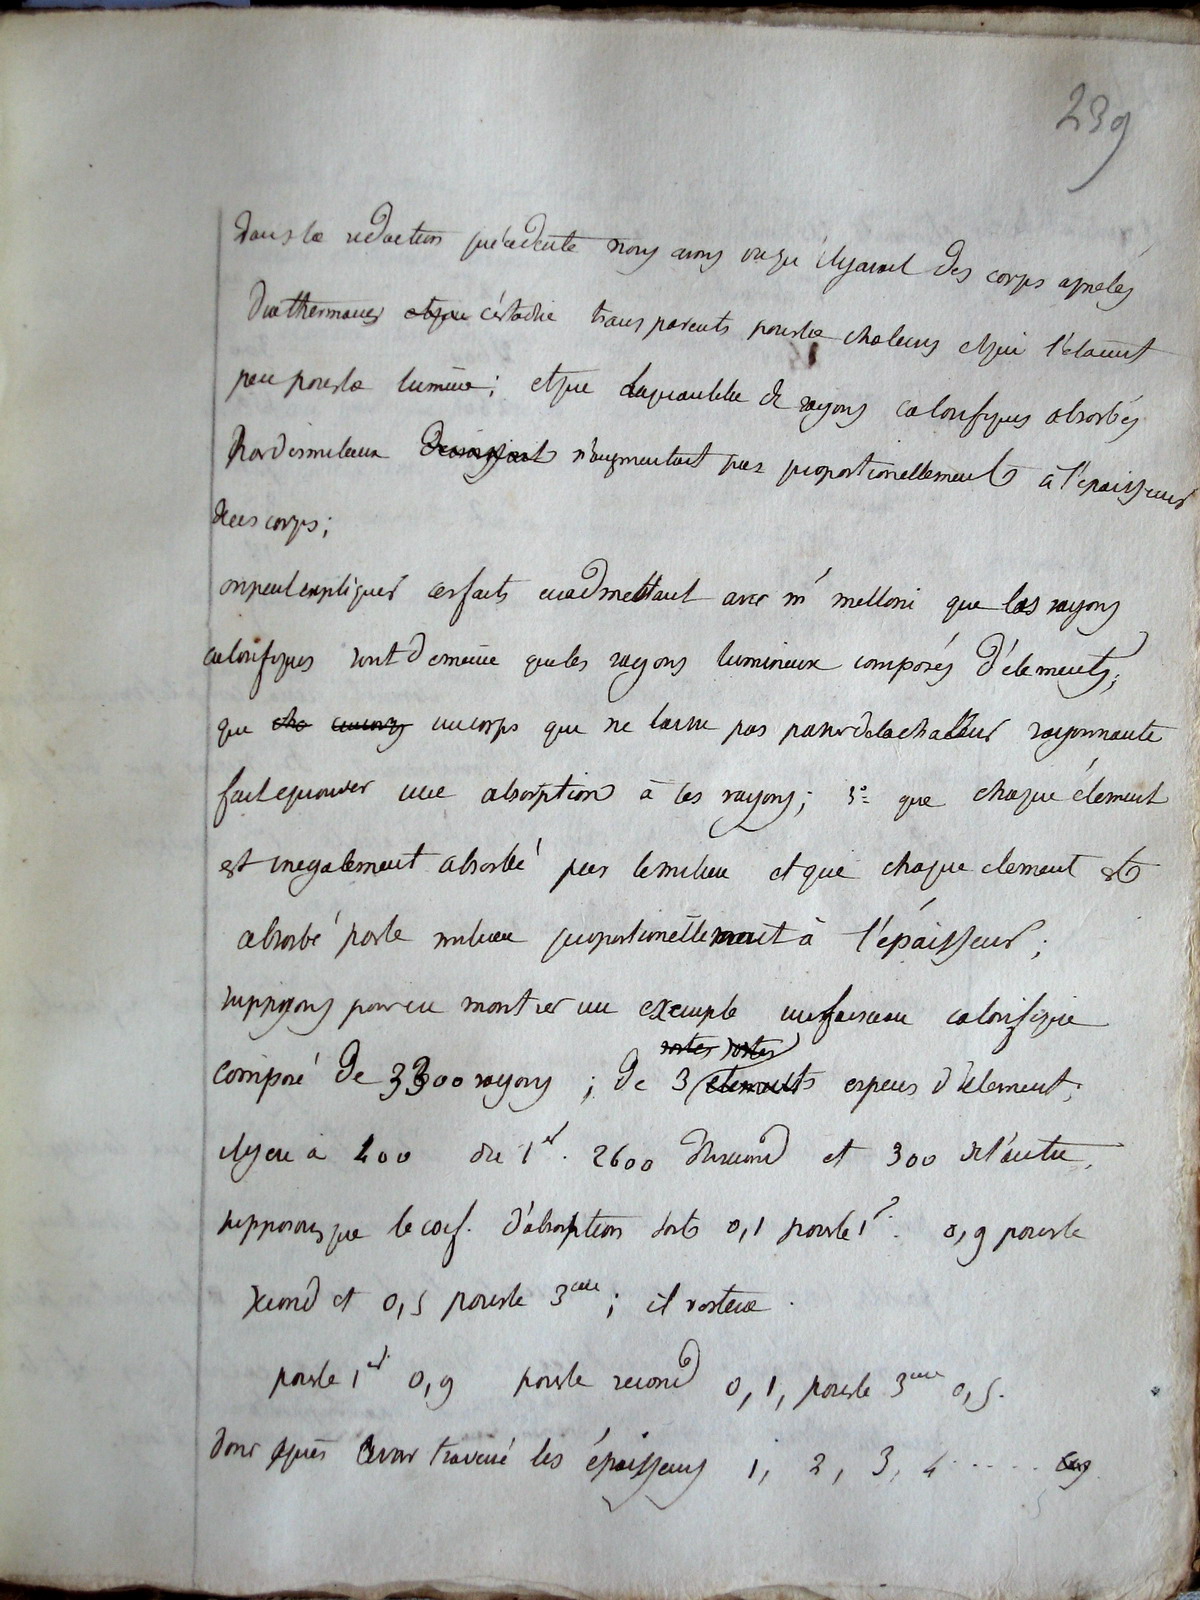 239
Dans la redaction précedente nous avons vu qu'il y avait des corps apnelés
Diathermanes c'éstadire transparents pour la chaleur et qui l'étaient
peu pour la lumiere; et que la quantité de rayons calorifiques absorbés
Par ces milieux n'augmentait pas proportionellement à l'épaisseur
de ces corps;
on peut expliquer ces faits en admettant avec mr melloni que les rayons
calorifiques sont de meme que les rayons lumineux composés d'élements;
que un corps que ne laisse pas passer de la chaleur rayonnante
fait eprouver une absorption à ces rayons; 3º que chaque élement
est inegalement absorbé par le milieu et que chaque element est
absorbé par le milieu proportionellement à l'épaisseur;
supposons pour en montrer un exemple un faisceau calorifique
composé de 3300 rayons; de 3 especes d'element;
il y en a 400 du 1er. 2600 du second et 300 de l'autre.
supposons que le coef. d'absorption soit 0,1 pour le 1er. 0,9 pour le
second et 0,5 pour le 3eme; il restera.
pour le 1er 0,9 pour le second 0,1, pour le 3eme 0,5.
Donc après avoir traversé les épaisseurs 1, 2, 3, 4 .....